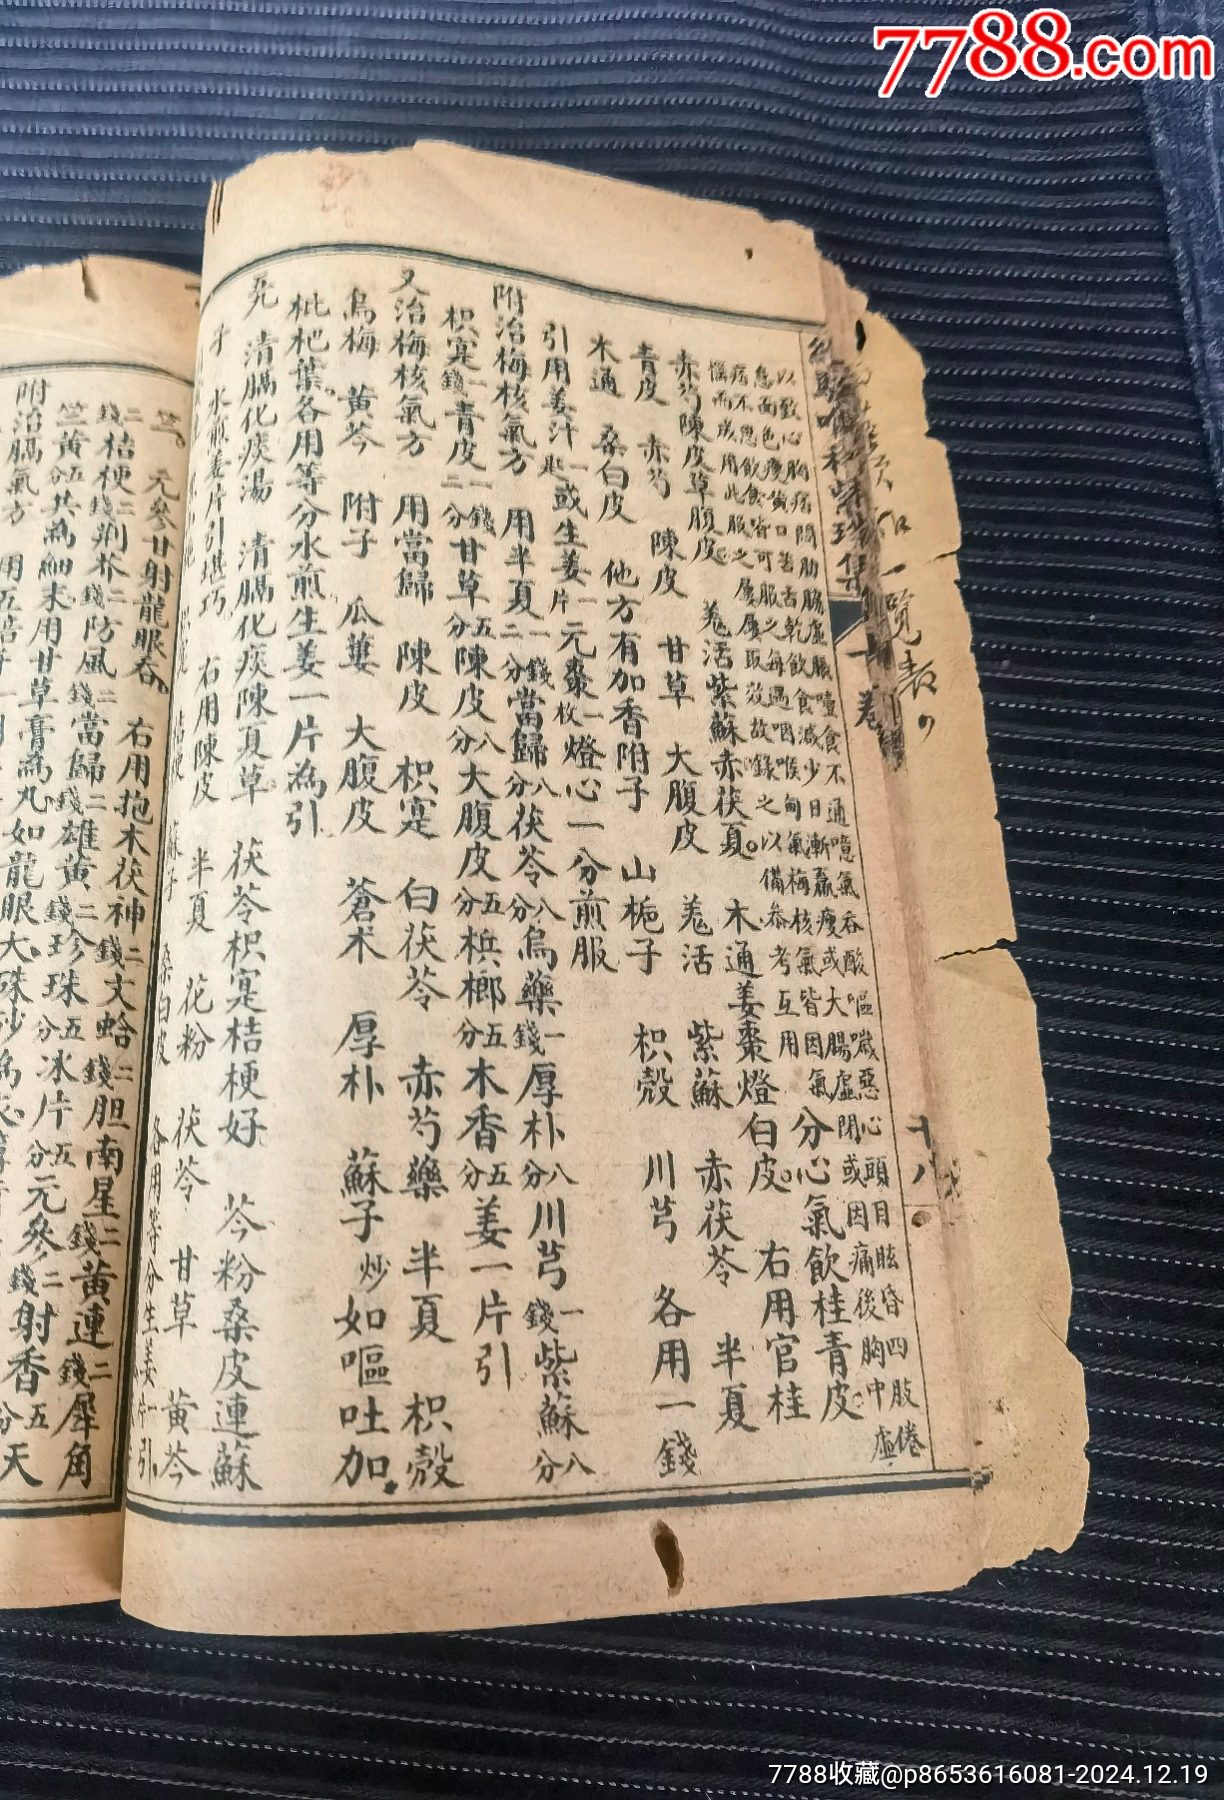 7788.com
以致心胸痞悶脇腸虛脹噎食不通噫氣吞酸嘔噦惡心頭目眩昏四肢倦
急面色瘦黃口苦舌乾飲食減少日漸羸瘦或大腸虛閉或因痛後胸中虛
痞不思飲食皆可服之每遇咽喉間氣梅核氣皆因氣
惱而成用此服之屢屢取效故錄之以備參考互用
分心氣飲桂青皮
赤芍陳皮草腹皮
羗活紫蘇赤茯夏
木通姜棗燈白皮
右用官桂
青皮 赤芍 陳皮 甘草 大腹皮 羗活 紫蘇 赤茯苓 半夏
木通 桑白皮 他方有加香附子 山梔子 枳殼 川芎 各用一錢
引用姜汁一匙或生姜一片元棗一枚燈心一分煎服
附治梅核氣方 用半夏一錢二分當歸八分茯苓八分烏藥一錢厚朴八分川芎一錢紫蘇八分
枳寔一錢青皮一錢二分甘草五分陳皮八分大腹皮五分梹榔五分木香五分姜一片引
又治梅核氣方 用當歸 陳皮 枳寔 白茯苓 赤芍藥 半夏 枳殼
烏梅 黃芩 附子 瓜蔞 大腹皮 蒼术 厚朴 蘇子炒如嘔吐加
枇杷葉各用等分水煎生姜一片為引
清膈化痰湯 清膈化痰陳夏草 茯苓枳寔桔梗好 芩粉桑皮連蘇
子 水煎姜片引堪巧 右用陳皮 半夏 花粉 茯苓 甘草 黃芩
蘇子 桑白皮 各用等分生姜一片引
元參甘射龍眼吞 右用抱木茯神二錢文蛤二錢胆南星二錢黃連二錢犀角
二錢桔梗二錢荊芥二錢防風二錢當歸二錢雄黃二錢珍珠五分冰片五分元參二錢射香五分天
竺黃五分共為細末用甘草膏為丸如龍眼大硃砂為衣
附治膈氣方 用五倍子一
十八
7788收藏@p8653616081-2024.12.19